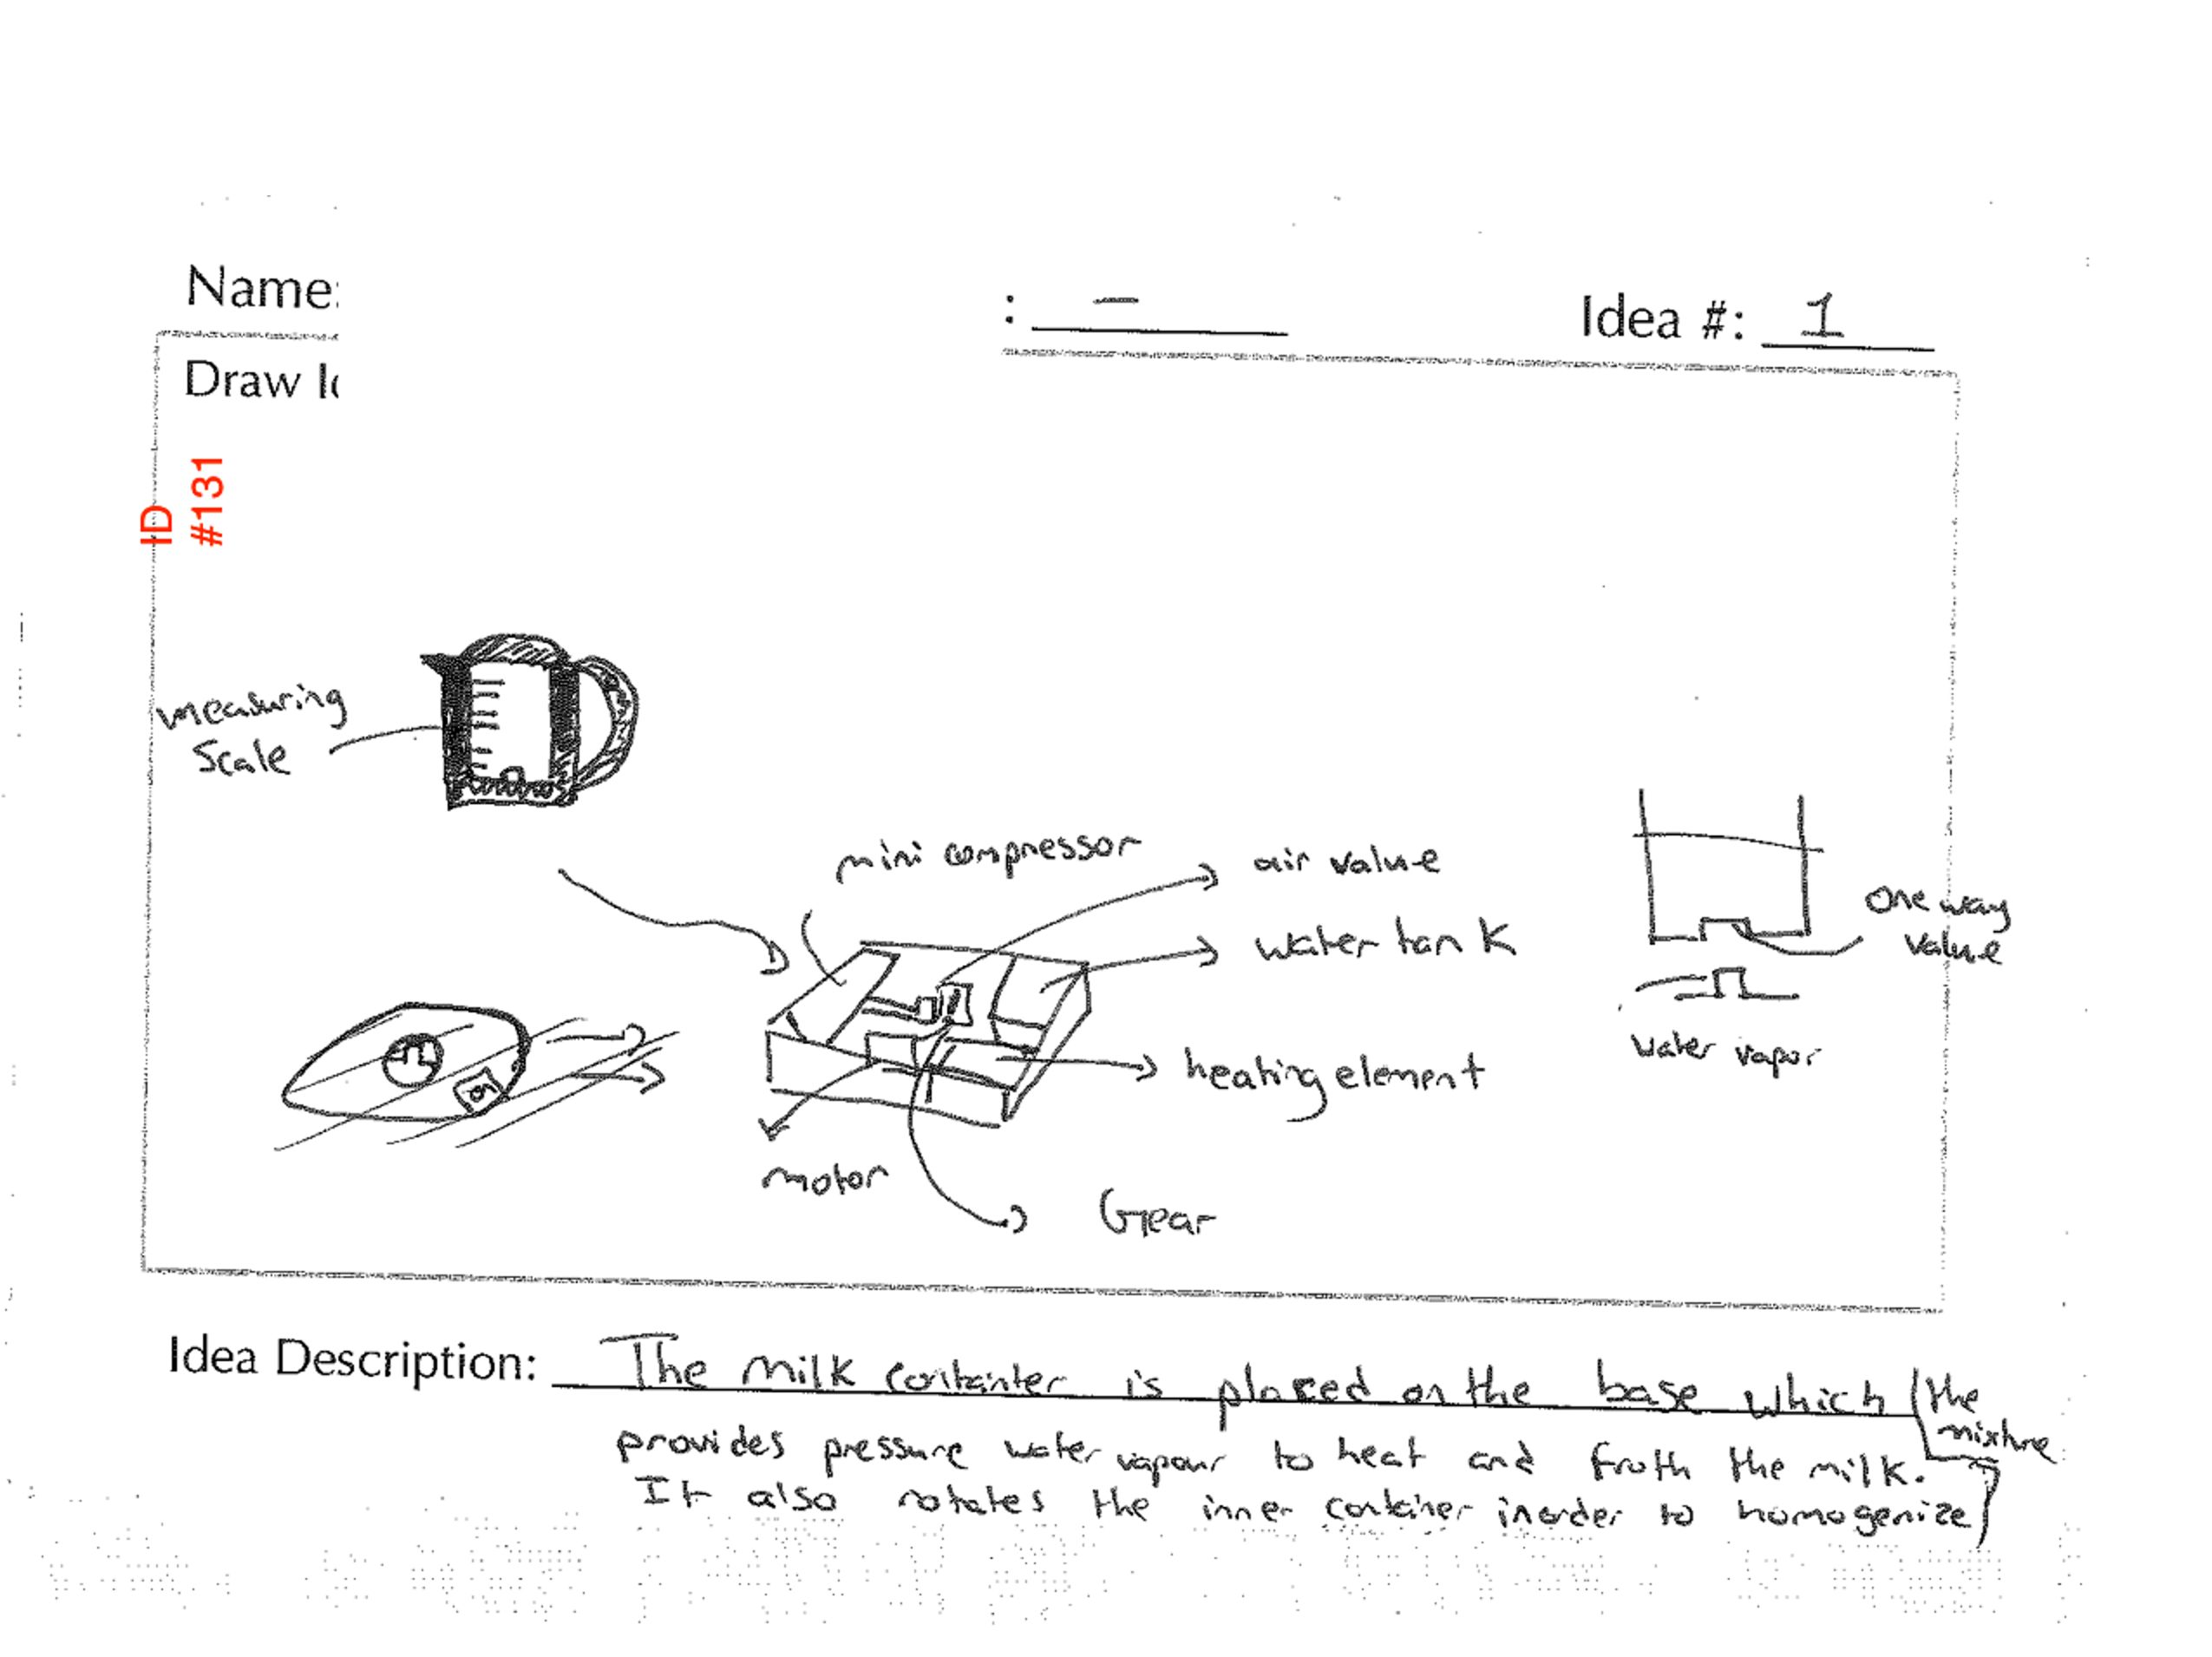 Name:
: –
Idea #: 1
Draw I
ID
#131
measuring
Scale
mini compressor
air value
water tank
one way
value
water vapor
heating element
motor
Gear
Idea Description: The milk containter is placed on the base which (the
mixture
provides pressure water vapour to heat and froth the milk.
It also rotates the inner container inorder to homogenize)